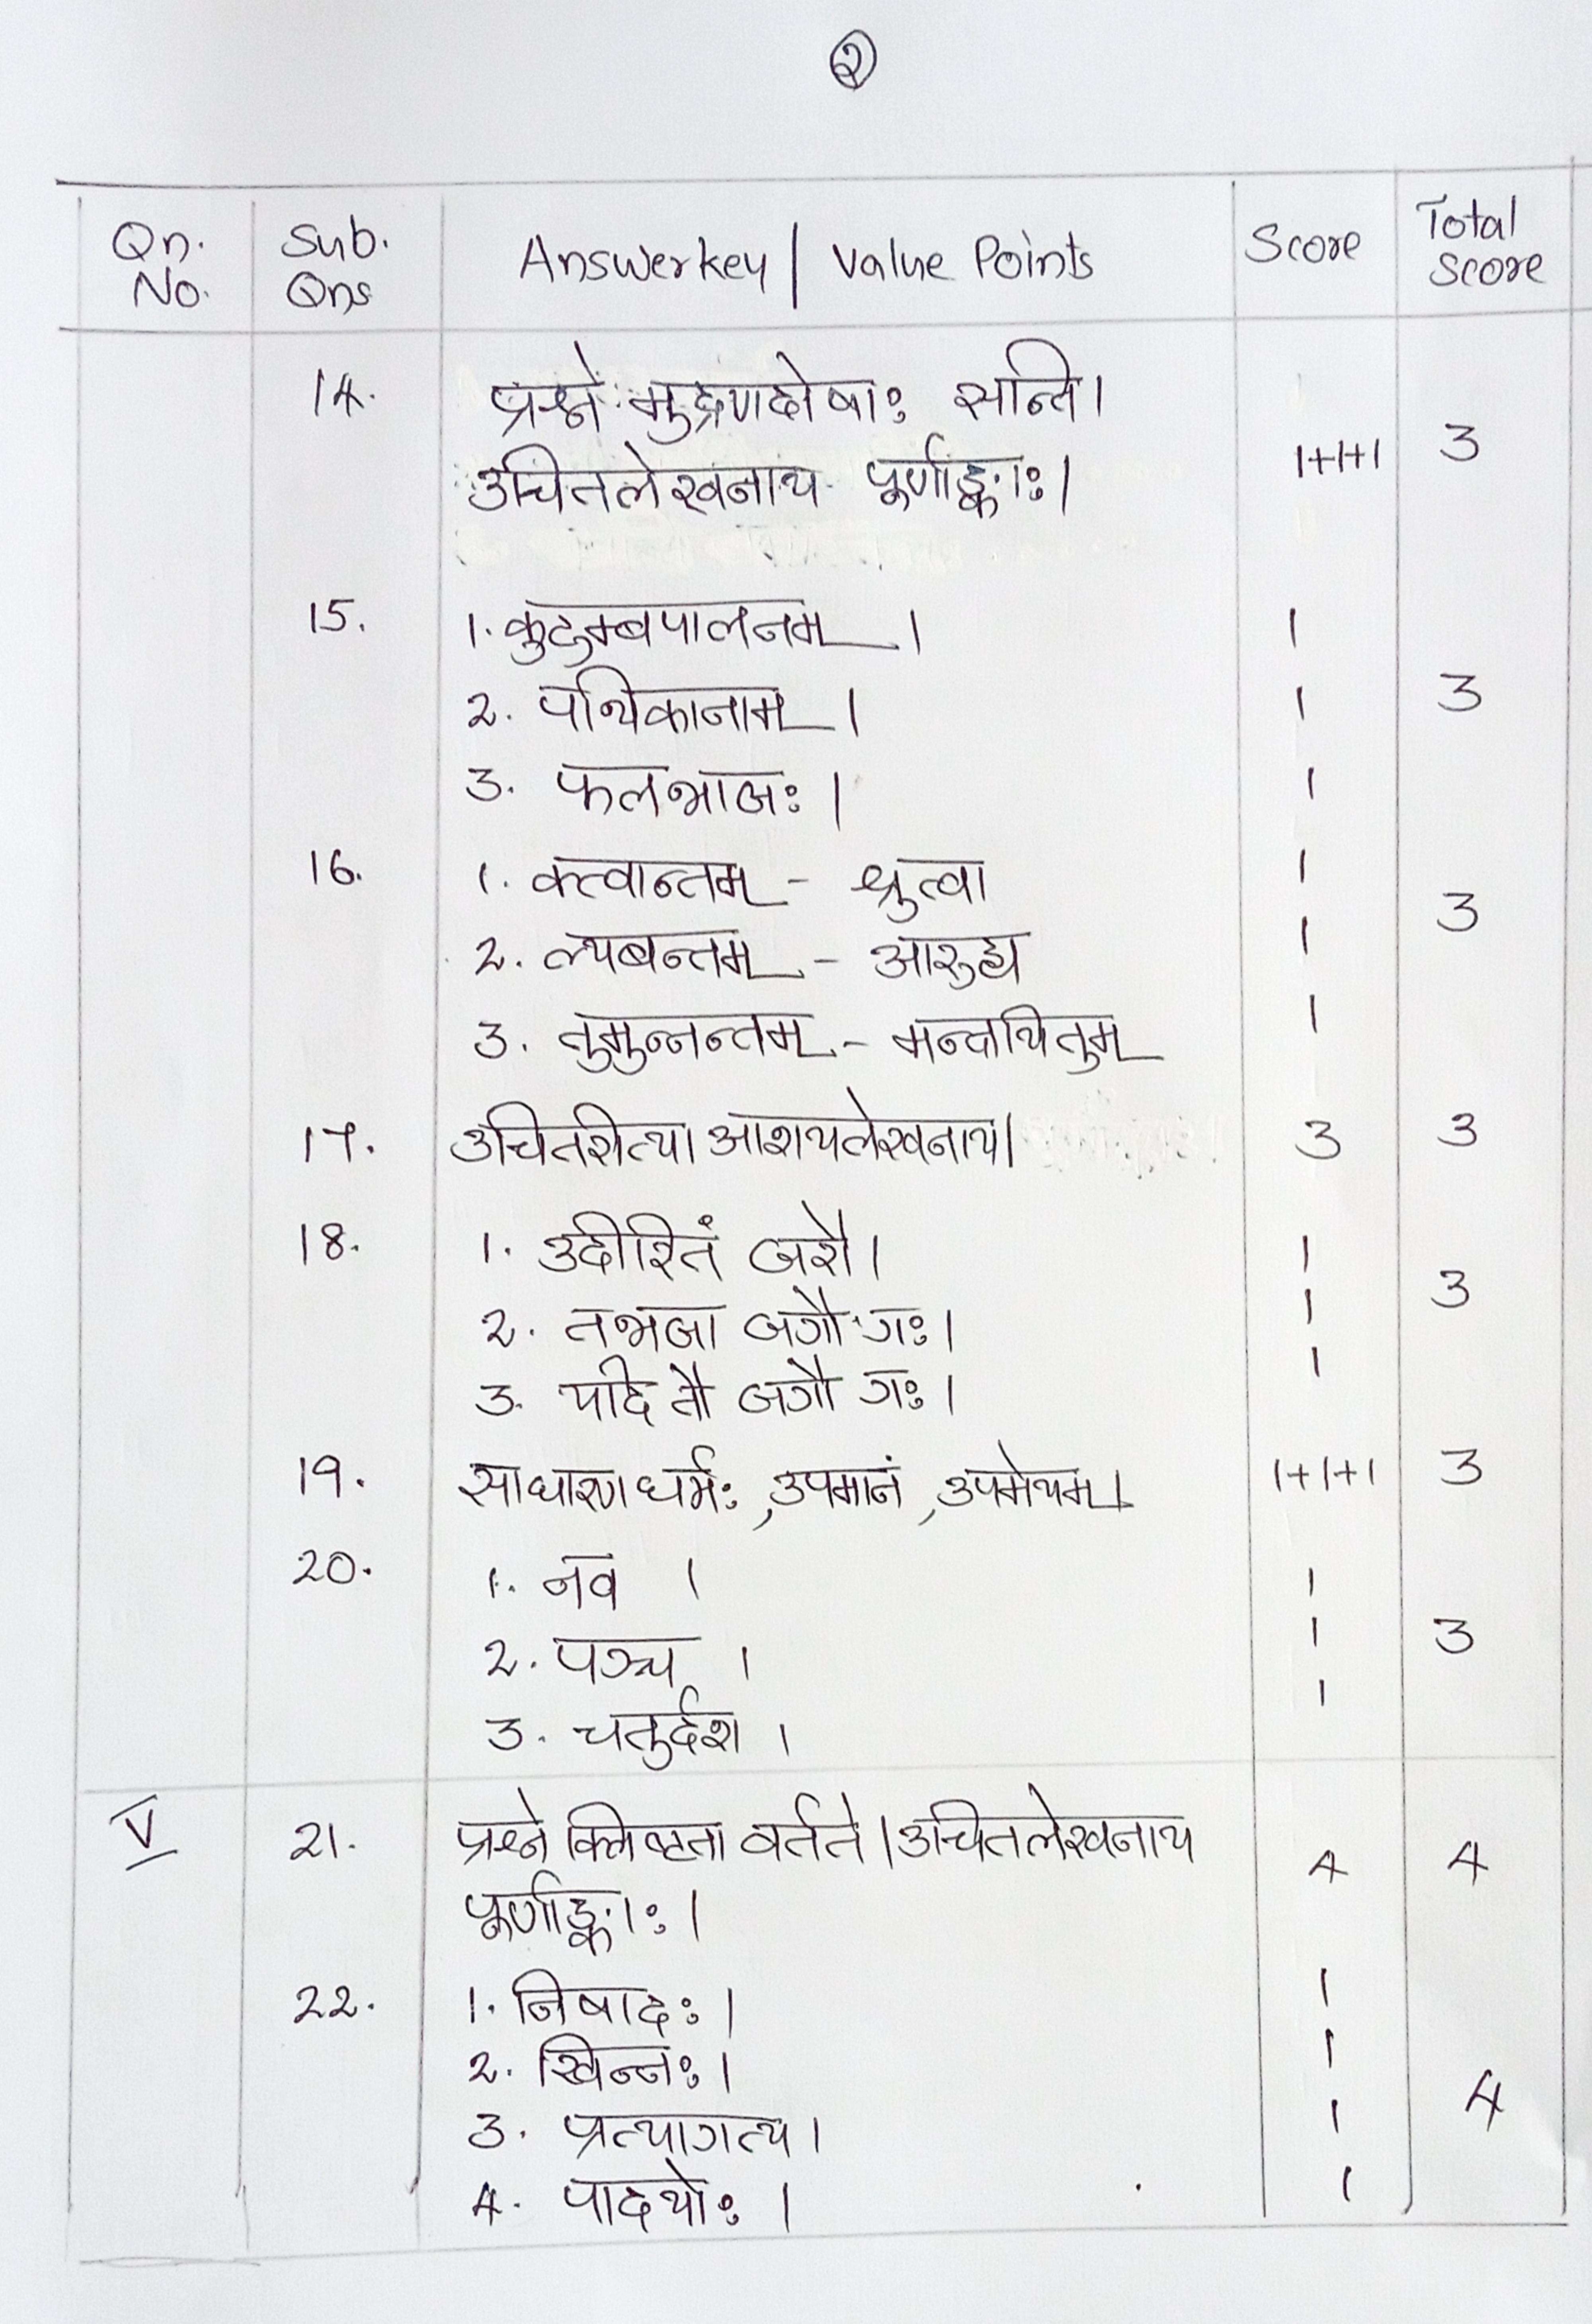 २
Qn. No. Sub. Qns Answerkey | Value Points Score Total Score
14. प्रश्ने मुद्रणदोषाः सन्ति। 1+1+1 3
उचितलेखनाय पूर्णाङ्काः।
15. 1. कुटुम्बपालनम्। 1 3
2. पथिकानाम्। 1
3. फलभाजः। 1
16. 1. क्त्वान्तम् - श्रुत्वा 1 3
2. ल्यबन्तम् - आरुह्य 1
3. तुमुन्नन्तम् - मन्त्रयितुम् 1
17. उचितरीत्या आशयलेखनाय। 3 3
18. 1. उदीरितं जरौ। 1 3
2. तभजा जगौ गः। 1
3. यदि तौ जगौ गः। 1
19. साधारणधर्मः, उपमानं, उपमेयम्। 1+1+1 3
20. 1. नव। 1 3
2. पञ्च। 1
3. चतुर्दश। 1
V 21. प्रश्ने क्लिष्टता वर्तते। उचितलेखनाय 4 4
पूर्णाङ्काः।
22. 1. निषादः। 1 4
2. खिन्नः। 1
3. प्रत्यागत्य। 1
4. पादयोः। 1